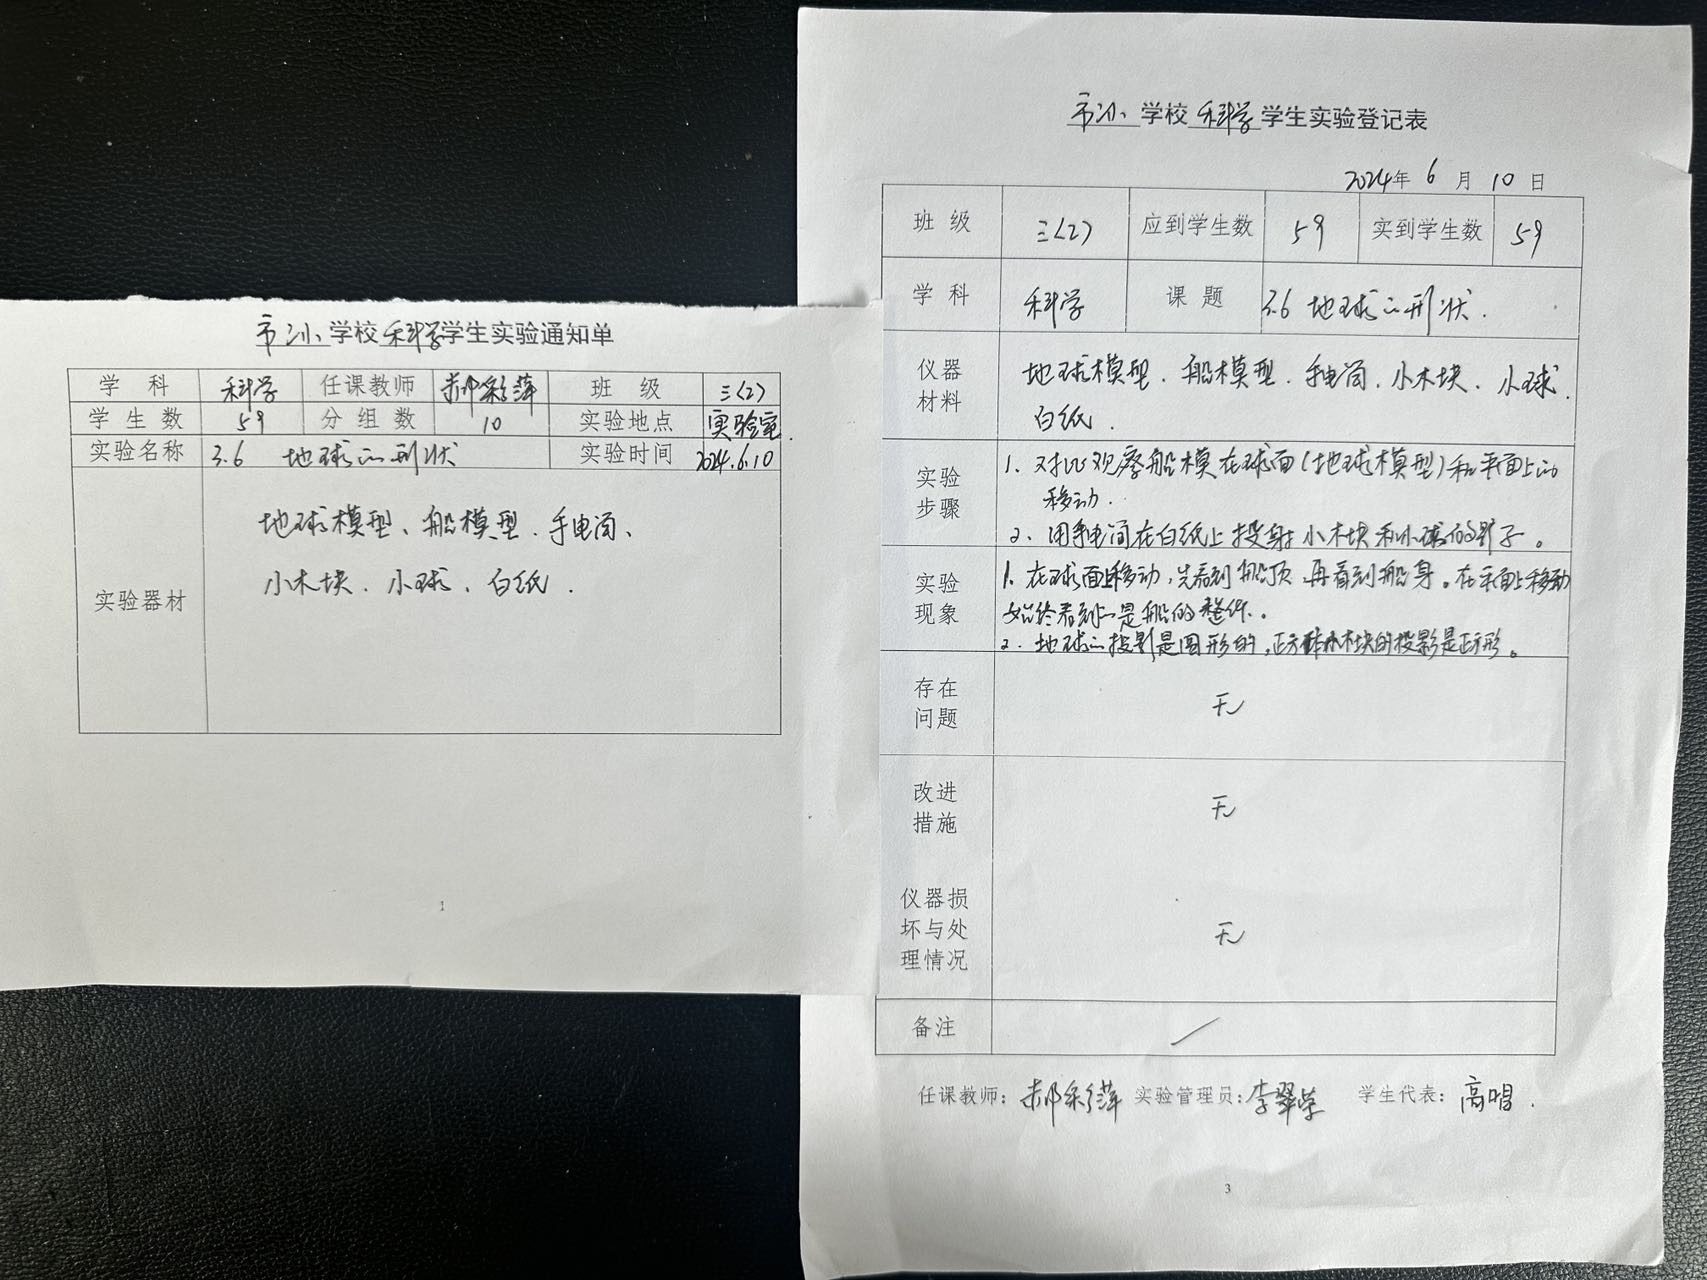 学校科学学生实验通知单
学科 科学 任课教师 郝彩萍 班级 三(2)
学生数 59 分组数 10 实验地点 实验室.
实验名称 3.6 地球的形状 实验时间 2024.6.10
实验器材
地球模型、船模型、手电筒、
小木块、小球、白纸.
1
学校科学学生实验登记表
2024年6月10日
班级 三(2) 应到学生数 59 实到学生数 59
学科 科学 课题 3.6 地球的形状.
仪器材料
地球模型、船模型、手电筒、小木块、小球.
白纸.
实验步骤
1. 对比观察船模在球面(地球模型)和平面上的
移动.
2. 用手电筒在白纸上投射小木块和小球的影子。
实验现象
1. 在球面上移动,先看到船顶,再看到船身。在平面上移动
始终看到的是船的整体.。
2. 地球的投影是圆形的,正方体小木块的投影是正方形。
存在问题 无
改进措施 无
仪器损坏与处理情况 无
备注 /
任课教师:郝彩萍 实验管理员:李翠 学生代表:高唱.
3